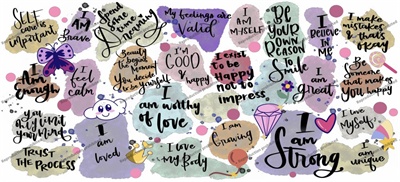 SELF
care is
important
I
AM
Brave
Spend
some
time
dreaming
My feelings are
Valid
I
AM
MYSELF
BE
YOUR
OWN
REASON
to
Smile
I
BELIEVE
IN
ME
I make
mistakes &
that's
okay
I
Am
enough
I
feel
CALM
Beauty
begins the
Moment
You decide
to be yourself
I'M
GOOD
&
happy
I exist
to be
Happy
not to
impress
I
am
great
Be
Someone
that makes
you happy
TRUST
THE PROCESS
I
am
loved
I
am worthy
of love
I love
my Body
I am
Growing
I
am
Strong
I love
Myself
I am
unique